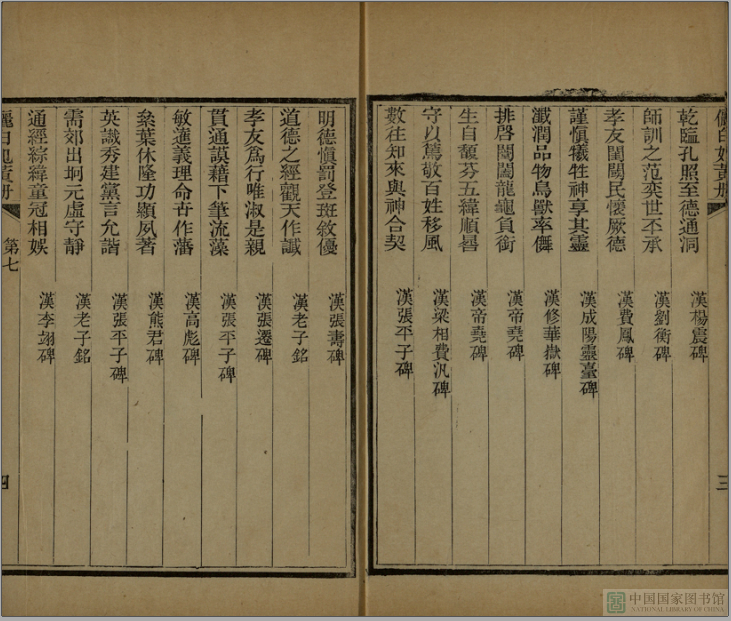 乾臨孔照至德通洞 漢楊震碑
師訓之范奕世丕承 漢劉衡碑
孝友閨閫民懷厥德 漢費鳳碑
謹慎犧牲神享其靈 漢成陽靈臺碑
瀸潤品物鳥獸率儛 漢修華嶽碑
排啓閶闔龍龜負銜 漢帝堯碑
生自馥芬五緯順晷 漢帝堯碑
守以篤敬百姓移風 漢梁相費汎碑
數往知來與神合契 漢張平子碑
三
明德慎罰登斑敘優 漢張壽碑
道德之經觀天作讖 漢老子銘
孝友爲行唯淑是親 漢張遷碑
貫通謨藉下筆流藻 漢張平子碑
敏滙義理命卋作藩 漢高彪碑
桑葉休隆功顯夙著 漢熊君碑
英識秀建黨言允諧 漢張平子碑
需郊出坰元虛守靜 漢老子銘
通經綜緯童冠相娛 漢李翊碑
第七
四
中国国家图书馆
NATIONAL LIBRARY OF CHINA